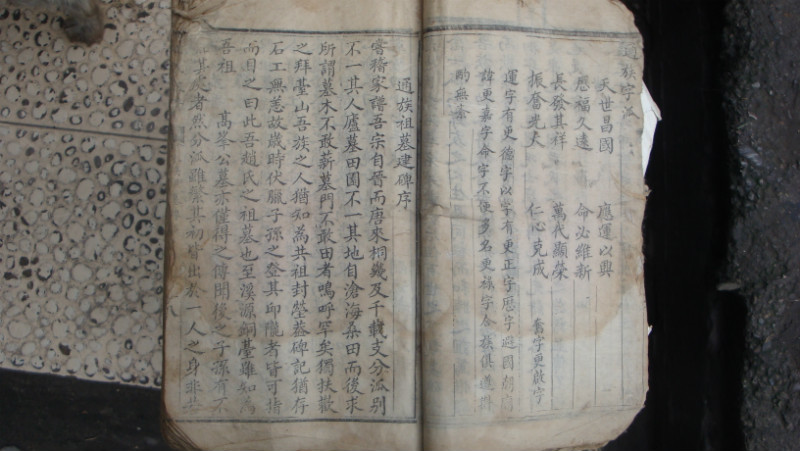 通族字派
天世昌國 應運以興
歷福久遠 命必維新
長發其祥 萬代顯榮
振奮光大 仁心克成 喬字更啟字
運字有更德字以字有更正字歷字避國朝
諱更嘉字命字不便多名更祿字合族俱遵
酌無
通族祖墓建碑序
嘗稽家譜吾宗自晉而唐來桐幾及千載支分派別
不一其人廬墓田園不一其地自滄海桑田而後求
所謂墓木不敢薪墓門不敢田者嗚呼罕矣獨扶歡
之拜臺山吾族之人猶知為共祖封塋盖碑記猶存
石工無恙故歲時伏臘子孫之登其邱隴者皆可指
而目之曰此吾趙氏之祖墓也至溪源銅臺雖知為
吾祖 高峯公墓亦僅得之傳聞後之子孫有不
其處者然分派雖繁其初皆出於一人之身非共